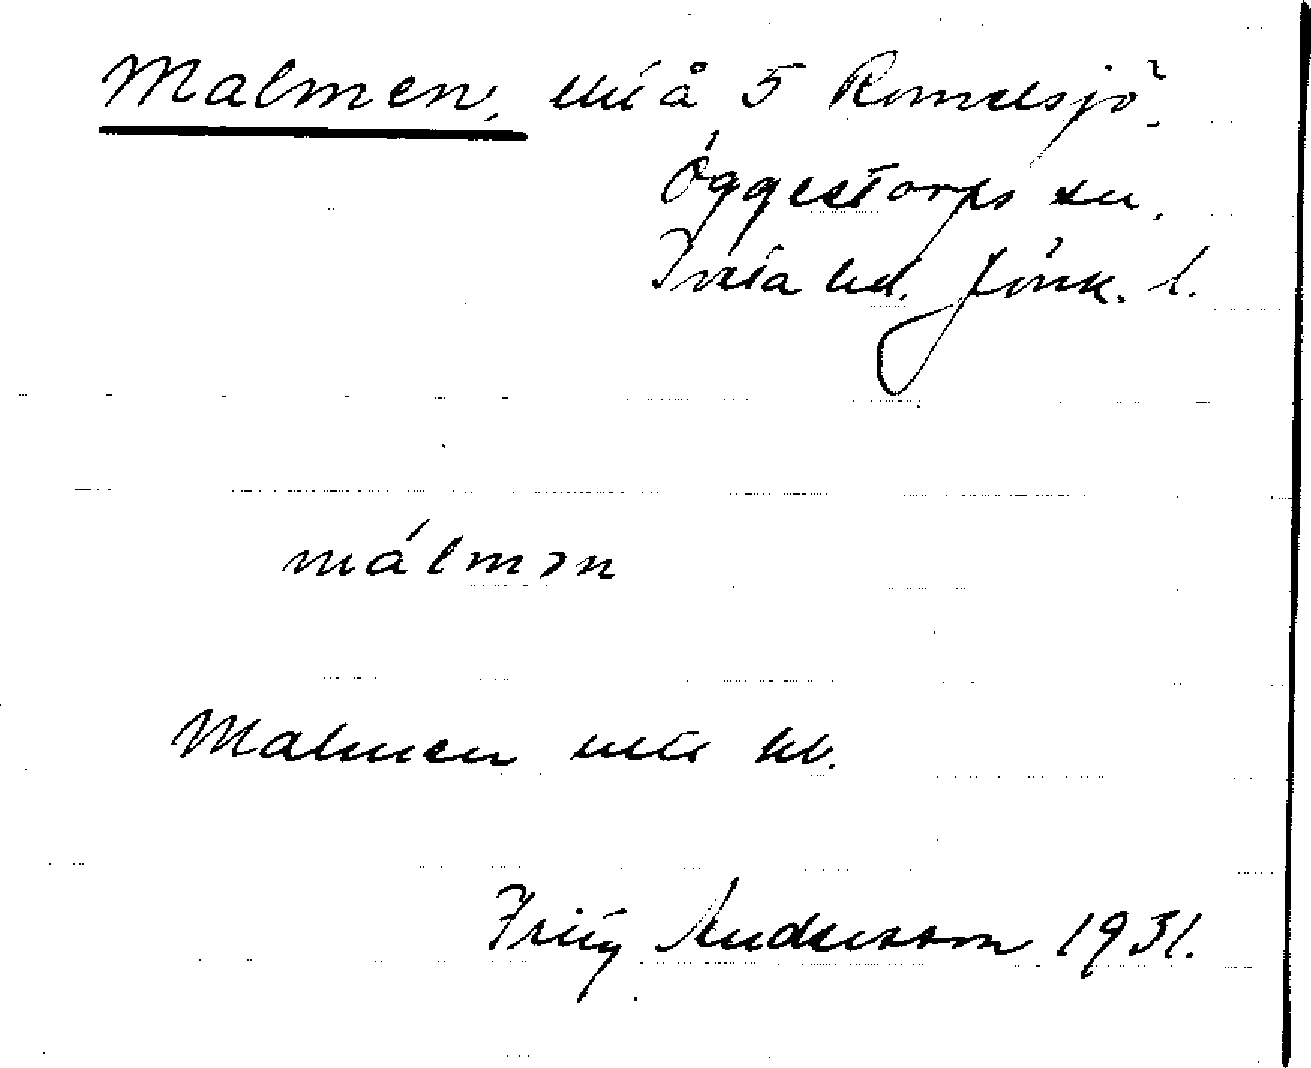 Malmen, å 5 Romelsjö.
Öggestorps sn.
Tveta hd. Jönk. l.
málmən
Malmen
Fritz Andersson 1931.